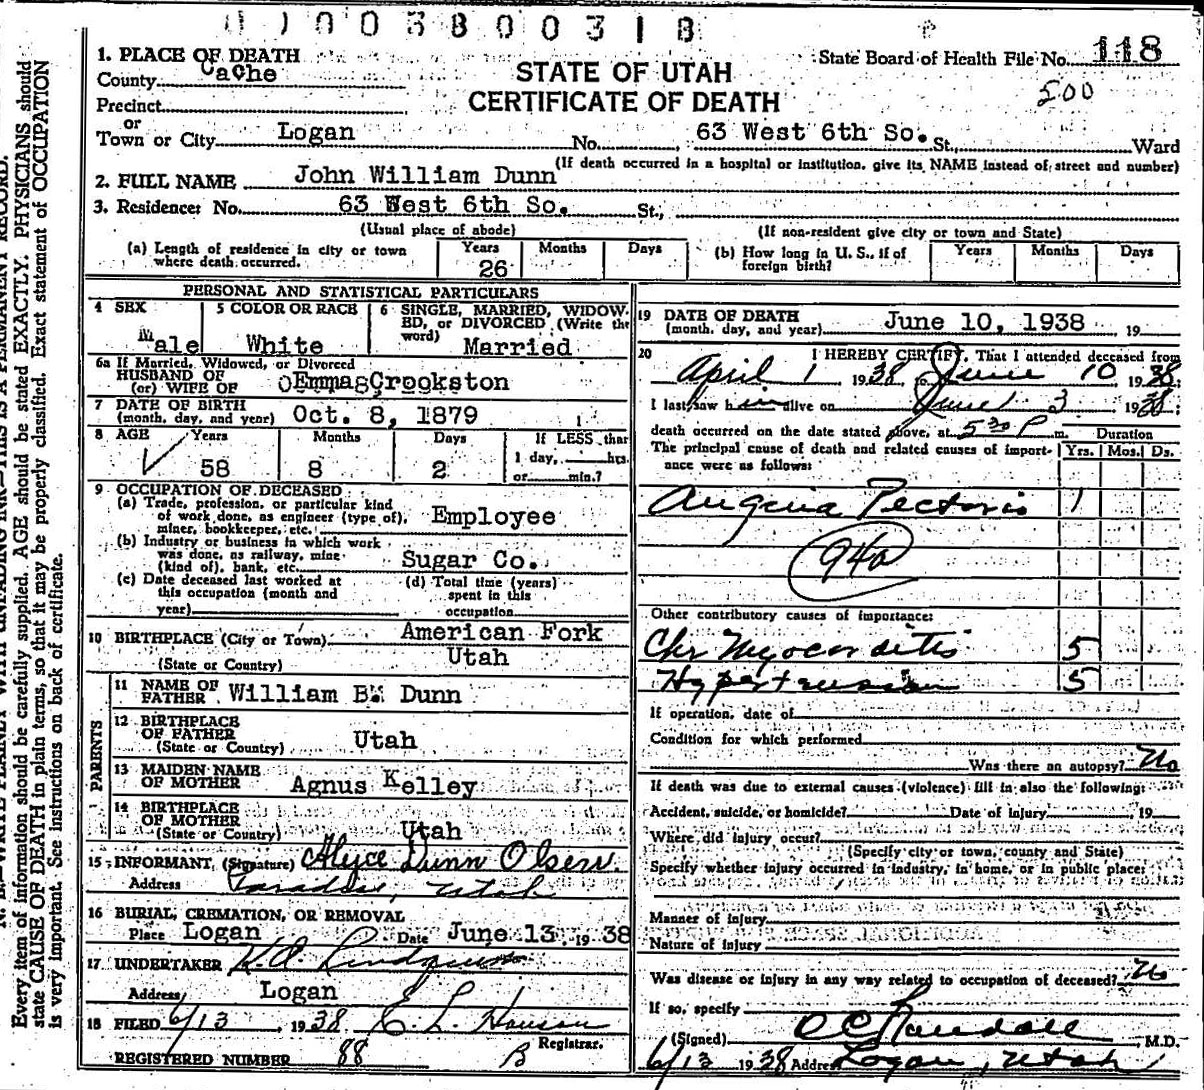 003800318
1. PLACE OF DEATH
County Cache
Precinct
or
Town or City Logan
STATE OF UTAH
CERTIFICATE OF DEATH
State Board of Health File No. 118
500
No. 63 West 6th So. St., Ward
(If death occurred in a hospital or institution, give its NAME instead of street and number)
2. FULL NAME John William Dunn
3. Residence: No. 63 West 6th So. St.,
(Usual place of abode) (If non-resident give city or town and State)
(a) Length of residence in city or town where death occurred. Years 26 Months Days
(b) How long in U. S., if of foreign birth? Years Months Days
PERSONAL AND STATISTICAL PARTICULARS
4 SEX Male
5 COLOR OR RACE White
6 SINGLE, MARRIED, WIDOWED, or DIVORCED (Write the word) Married
6a If Married, Widowed, or Divorced
HUSBAND OF
(or) WIFE OF Emma Crookston
7 DATE OF BIRTH
(month, day, and year) Oct. 8, 1879
8 AGE Years 58 Months 8 Days 2
If LESS than
1 day, hrs.
or min.?
9 OCCUPATION OF DECEASED
(a) Trade, profession, or particular kind
of work done, as engineer (type of),
miner, bookkeeper, etc. Employee
(b) Industry or business in which work
was done, as railway, mine
(kind of), bank, etc. Sugar Co.
(c) Date deceased last worked at
this occupation (month and
year)
(d) Total time (years)
spent in this
occupation
10 BIRTHPLACE (City or Town) American Fork
(State or Country) Utah
PARENTS
11 NAME OF
FATHER William B. Dunn
12 BIRTHPLACE
OF FATHER
(State or Country) Utah
13 MAIDEN NAME
OF MOTHER Agnus Kelley
14 BIRTHPLACE
OF MOTHER
(State or Country) Utah
15 INFORMANT, (Signature) Alyce Dunn Olsen
Address Paradise, Utah
16 BURIAL, CREMATION, OR REMOVAL
Place Logan Date June 13 1938
17 UNDERTAKER
Address Logan
18 FILED 6/13, 1938 E. L. Hansen
Registrar.
REGISTERED NUMBER 88 B
19 DATE OF DEATH
(month, day, and year) June 10, 1938 19
20 I HEREBY CERTIFY, That I attended deceased from
April 1 1938, to June 10 1938;
I last saw him alive on June 3 1938;
death occurred on the date stated above, at 5 30 P m. Duration
The principal cause of death and related causes of importance were as follows: Yrs. Mos. Ds.
Angina Pectoris 1
94a
Other contributory causes of importance:
Chr Myocarditis 5
Hypertension 5
If operation, date of
Condition for which performed
Was there an autopsy? No
If death was due to external causes (violence) fill in also the following:
Accident, suicide, or homicide? Date of injury 19
Where did injury occur?
(Specify city or town, county and State)
Specify whether injury occurred in industry, in home, or in public place:
Manner of injury
Nature of injury
Was disease or injury in any way related to occupation of deceased? No
If so, specify
(Signed) O C Randall M.D.
6/13 1938 Address Logan, Utah
Every item of information should be carefully supplied. AGE should be stated EXACTLY. PHYSICIANS should
state CAUSE OF DEATH in plain terms, so that it may be properly classified. Exact statement of OCCUPATION
is very important. See instructions on back of certificate.